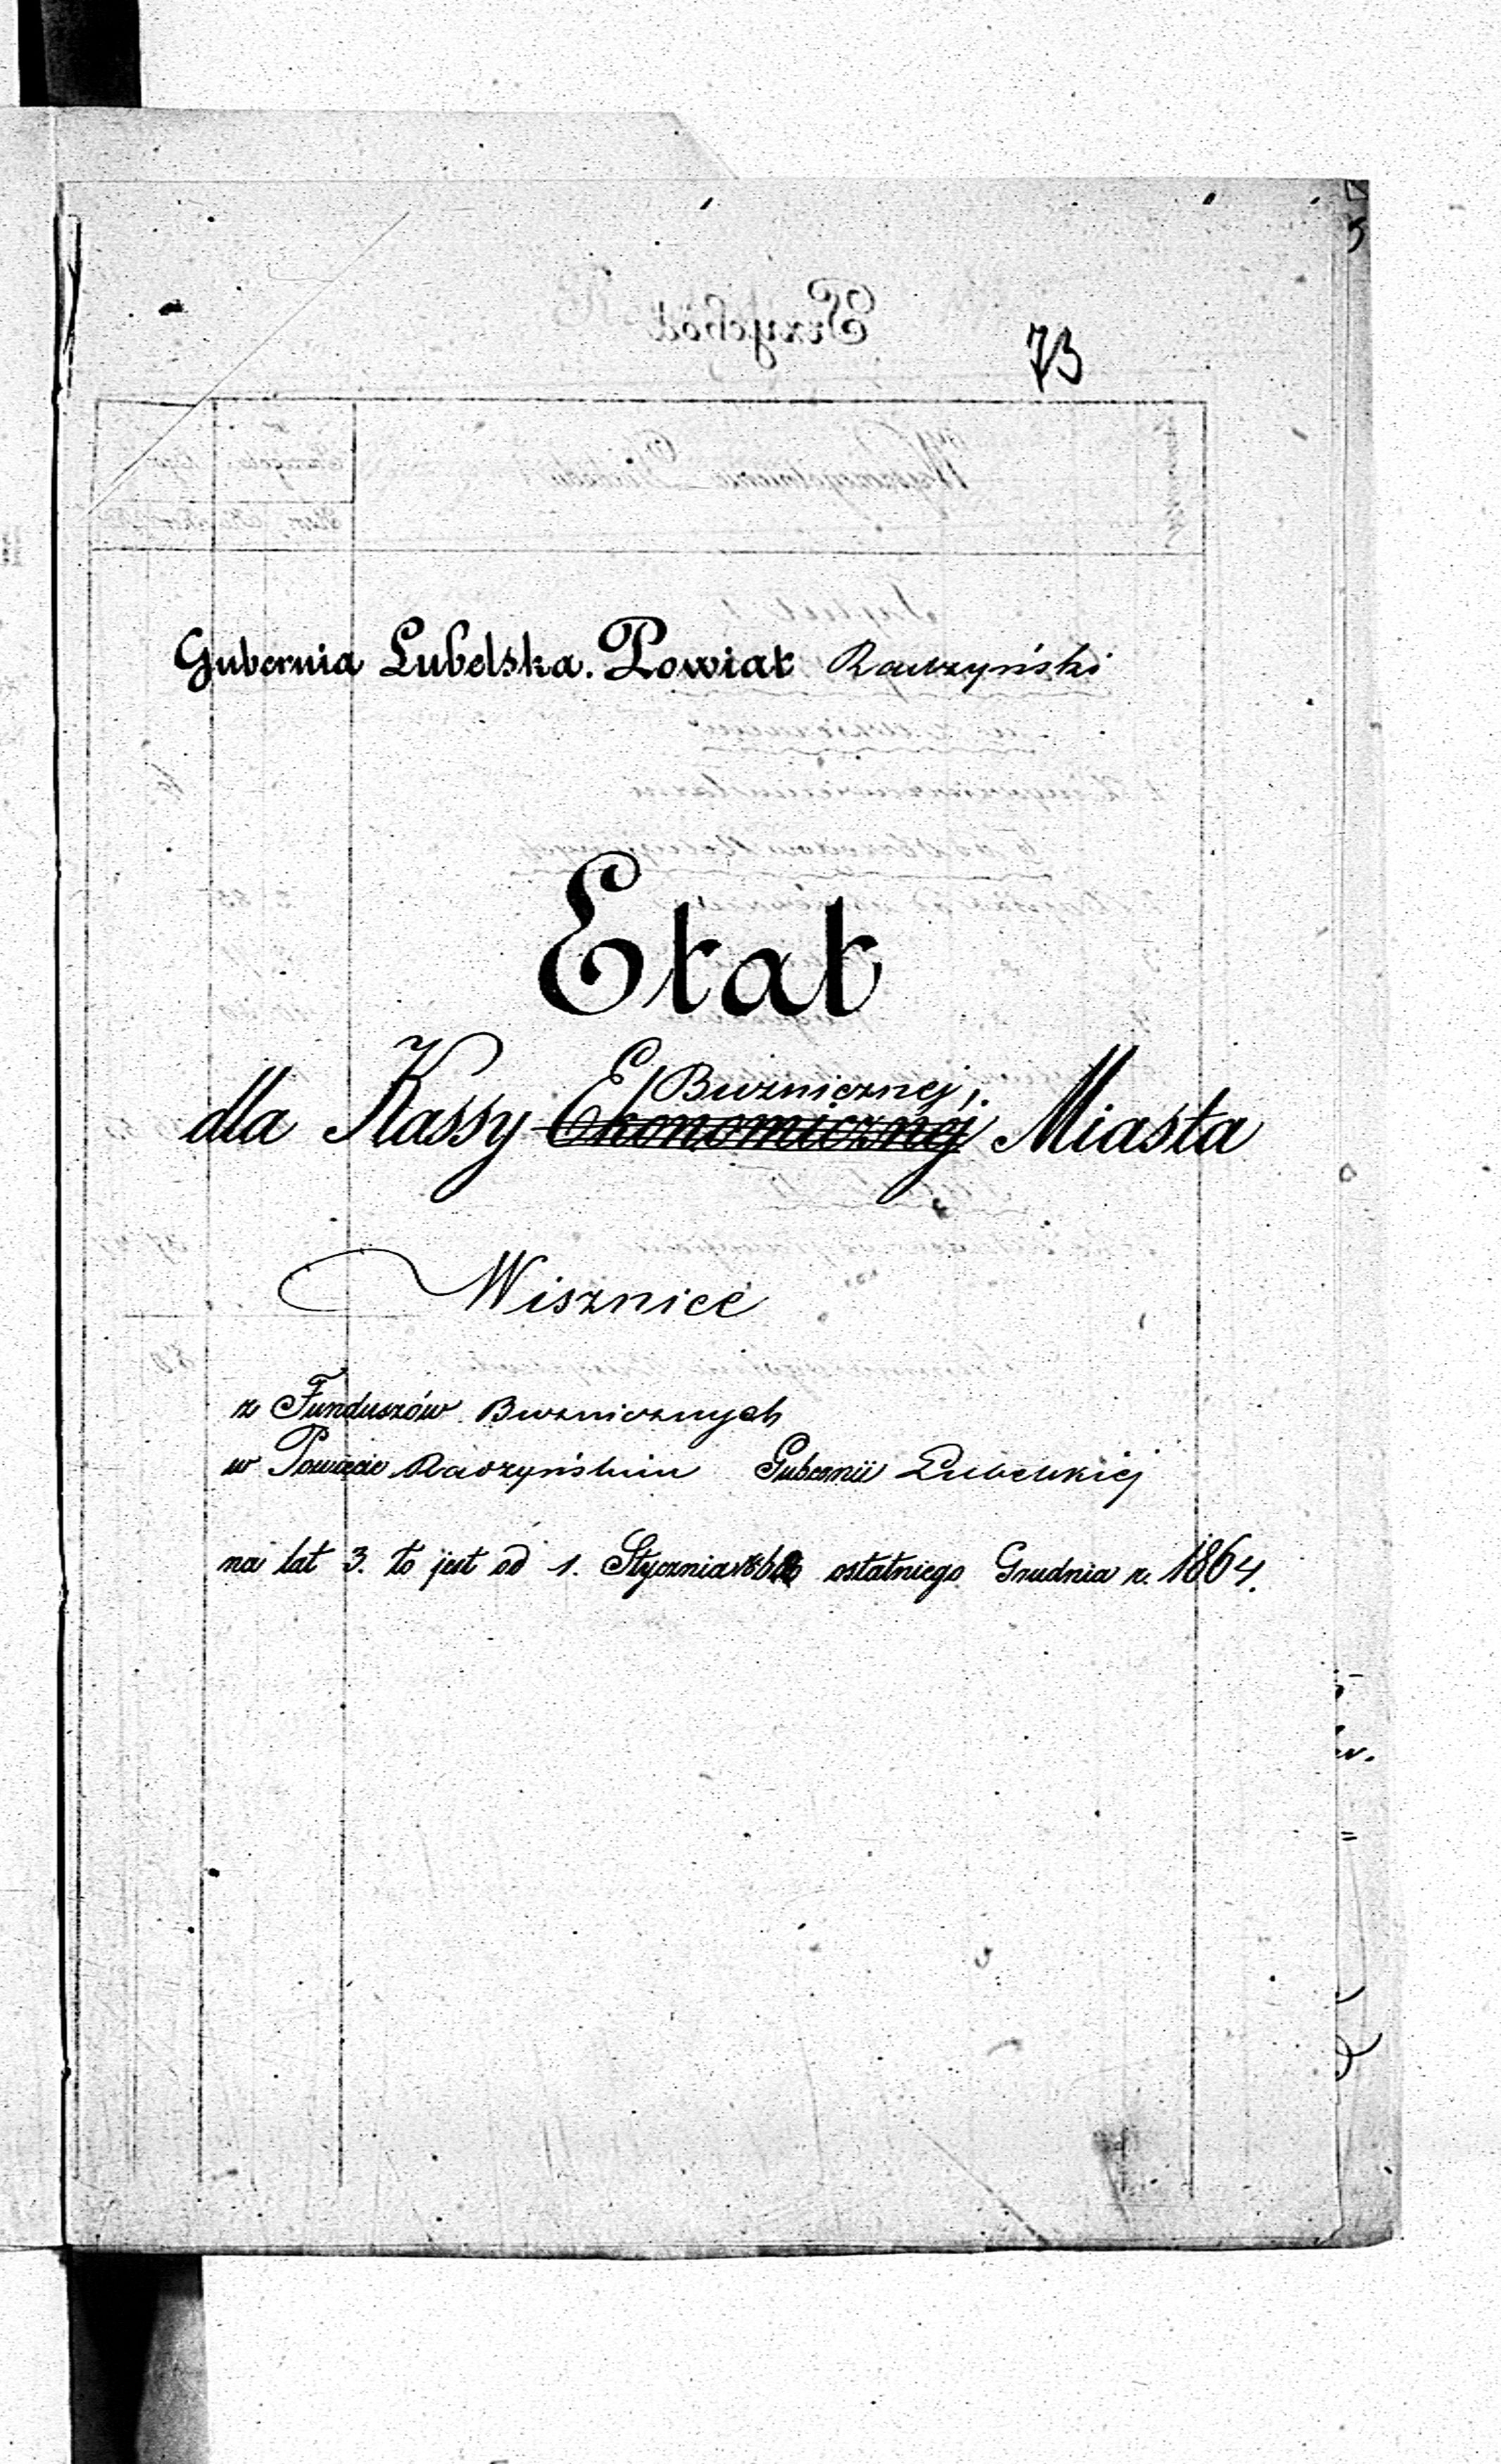 73
Gubernia Lubelska. Powiat Radzyński
Etat
Bużnicznej
dla Kassy Ekonomicznej Miasta
Wisznice
z Funduszów Bużnicznych
w Powiecie Radzyńskim Gubernii Lubelskiej
na lat 3. to jest od 1. Stycznia 1862 ostatniego Grudnia r. 1864.